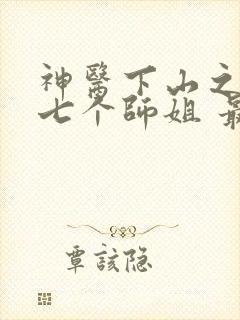 神醫下山之
七个師姐 最
覃該隐